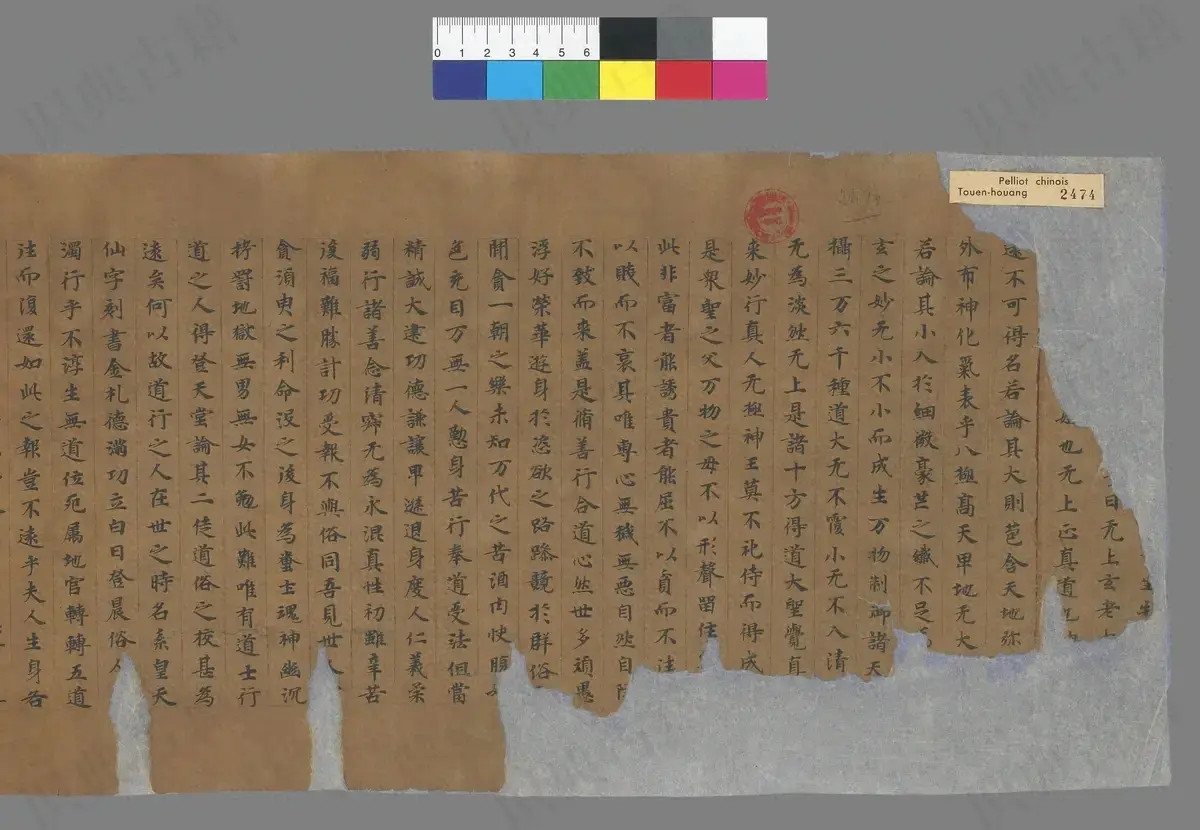 0 1 2 3 4 5 6
Pelliot chinois
Touen-houang 2474
2474
生
曰无上玄老
也无上正真道
不可得名若論其大則苞含天地弥
外布神化氣表乎八極高天卑地无大
若論其小入於細微豪芒之纖不足
玄之妙无小不小而成生万物制御諸天
攝三万六千種道大无不覆小无不入清
无為淡然无上是諸十方得道大聖覺自
來妙行真人无極神王莫不礼侍而得成
是衆聖之父万物之母不以形聲留住
此非富者能誘貴者能屈不以貪而不注
以賤而不哀其唯專心無穢無惡自然自
不致而來盖是脩善行合道心然世多頑愚
浮好榮華遊身於恣欲之路蹹競於群俗
間貪一朝之樂未知万代之苦酒肉快腹
色充目万無一人懃身苦行奉道受法但當
精誠大建功德謙讓卑遜退身度人仁義采
弱行諸善念清齋无為永混真性初雖辛苦
後福難勝計功受報不與俗同吾見世人
貪湏臾之利命沒之後身為蚕土魂神幽沉
拷罰地獄無男無女不勉此難唯有道士行
道之人得登天堂論其二徒道俗之挍甚為
遠矣何以故道行之人在世之時名奏皇天
仙字刻書金札德滿功立白日登晨俗人
濁行乎不淳生無道位死属地官轉轉五道
注而復還如此之報豈不遠乎夫人生身各